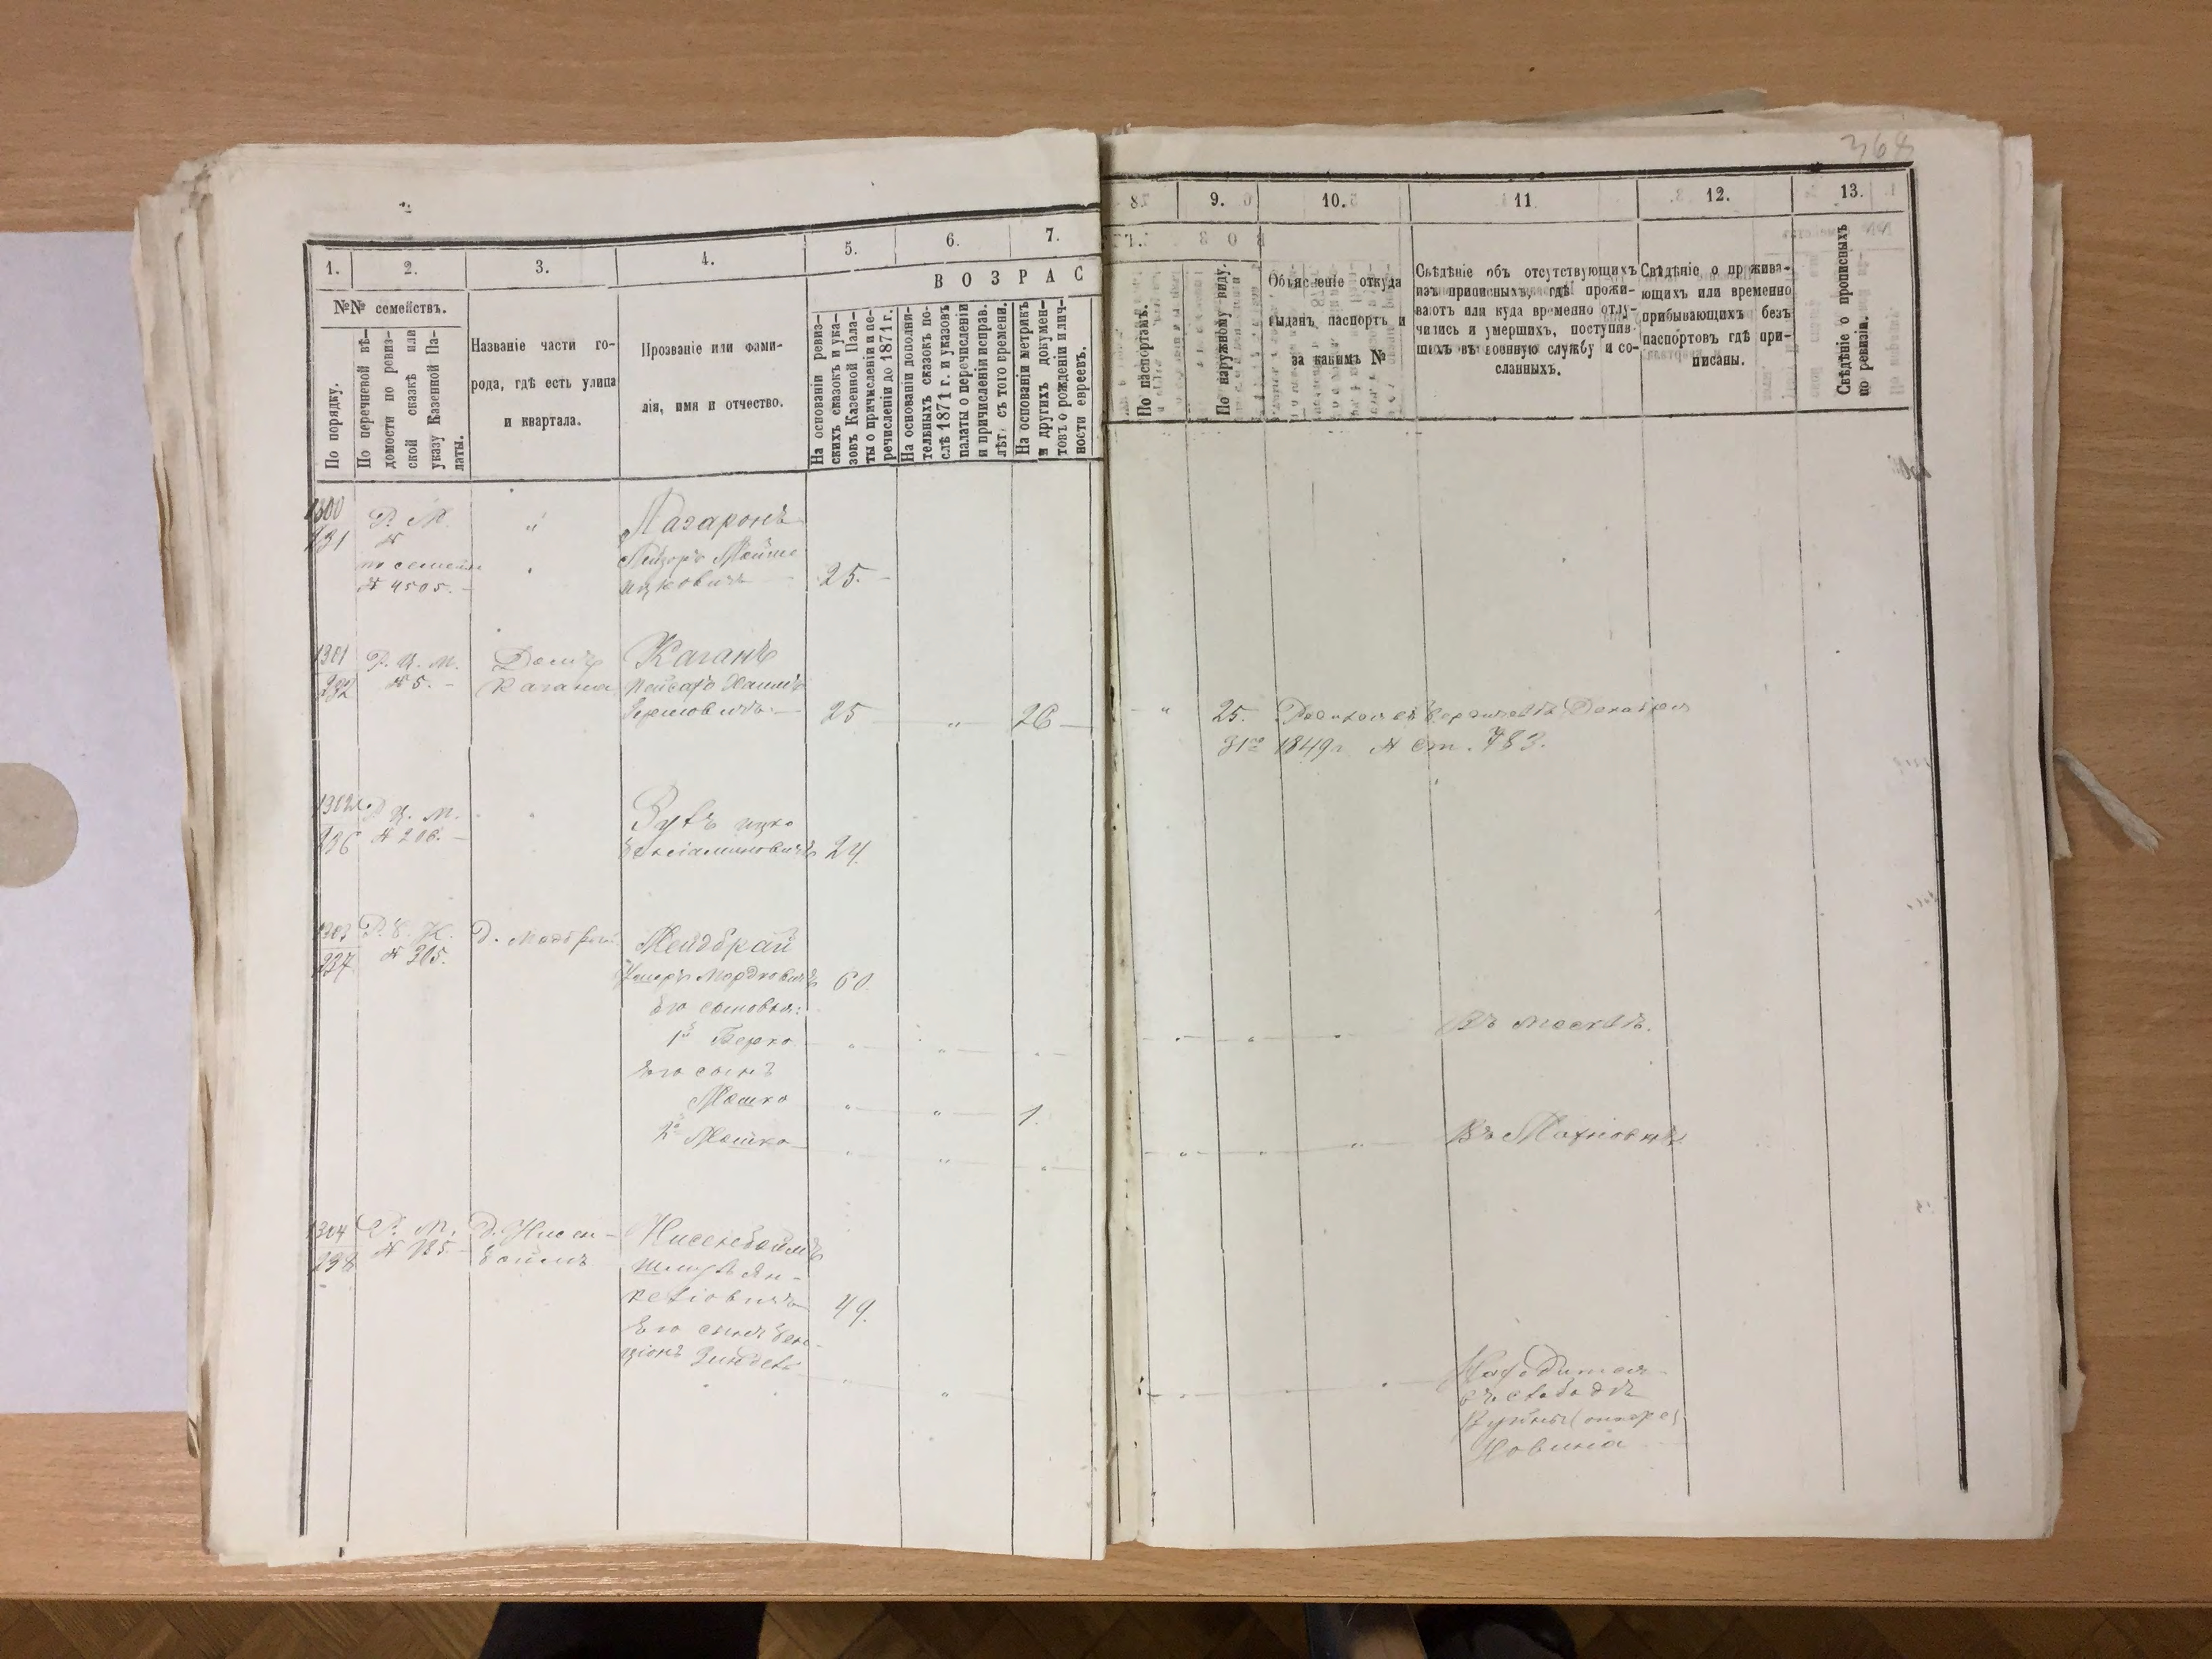 368
1. 2. 3. 4. 5. 6. 7.
ВОЗРАС
№№ семействъ.
По порядку.
По перечневой вѣ-
домости по ревиз-
ской сказкѣ или
указу Казенной Па-
латы.
Названіе части го-
рода, гдѣ есть улица
и квартала.
Прозваніе или фами-
лія, имя и отчество.
На основаніи ревиз-
скихъ сказокъ и ука-
зовъ Казенной Пала-
ты о причисленіи и пе-
речисленіи до 1871 г.
На основаніи дополни-
тельныхъ сказокъ по-
слѣ 1871 г. и указовъ
палаты о перечисленіи
и причисленіи исправ.
лѣтъ съ того времени.
На основаніи метрикъ
и другихъ докумен-
товъ о рожденіи и лич-
ности евреевъ.
8. 9. 10. 11. 12. 13.
По паспортамъ.
По наружному виду.
Объясненіе откуда
выданъ паспортъ и
за какимъ №
Свѣдѣніе объ отсутствующихъ
изъ приписныхъ, гдѣ прожи-
ваютъ или куда временно отлу-
чились и умершихъ, поступив-
шихъ въ военную службу и со-
сланныхъ.
Свѣдѣніе о прожива-
ющихъ или временно
прибывающихъ безъ
паспортовъ гдѣ при-
писаны.
Свѣдѣніе о прописныхъ
по ревизіи.
1300
Р. М.
№
по семейн
№ 4505.
Лазаронъ
Лейзоръ Мойше
Ицковичъ 25.
1301
232
Р. Ц. М.
№ 5.
Домъ
Кагана
Каганъ
Пейсахъ Хаимъ
25 " 26 " 25.
Декабря
31го 1849 г. № ст. 783.
1302
236
Р. Ц. М.
№ 206.
Ицко
Беніаминовичъ 24.
1303
237
Р. К.
№ 305.
Д.
Мейдбрай
Мордковичъ 60.
Его сыновья:
1й Берко
Въ Москвѣ.
Его сынъ
Мошко " " 1.
2й Мошко
Въ Махновкѣ
1304
238
Р. М.
№ 125.
Д. Нисен-
боймъ
Нисенбоймъ
Ян-
келіовичъ 49.
Его сынъ Бен-
ціонъ Зиндель
Находится
въ слободѣ
Новина